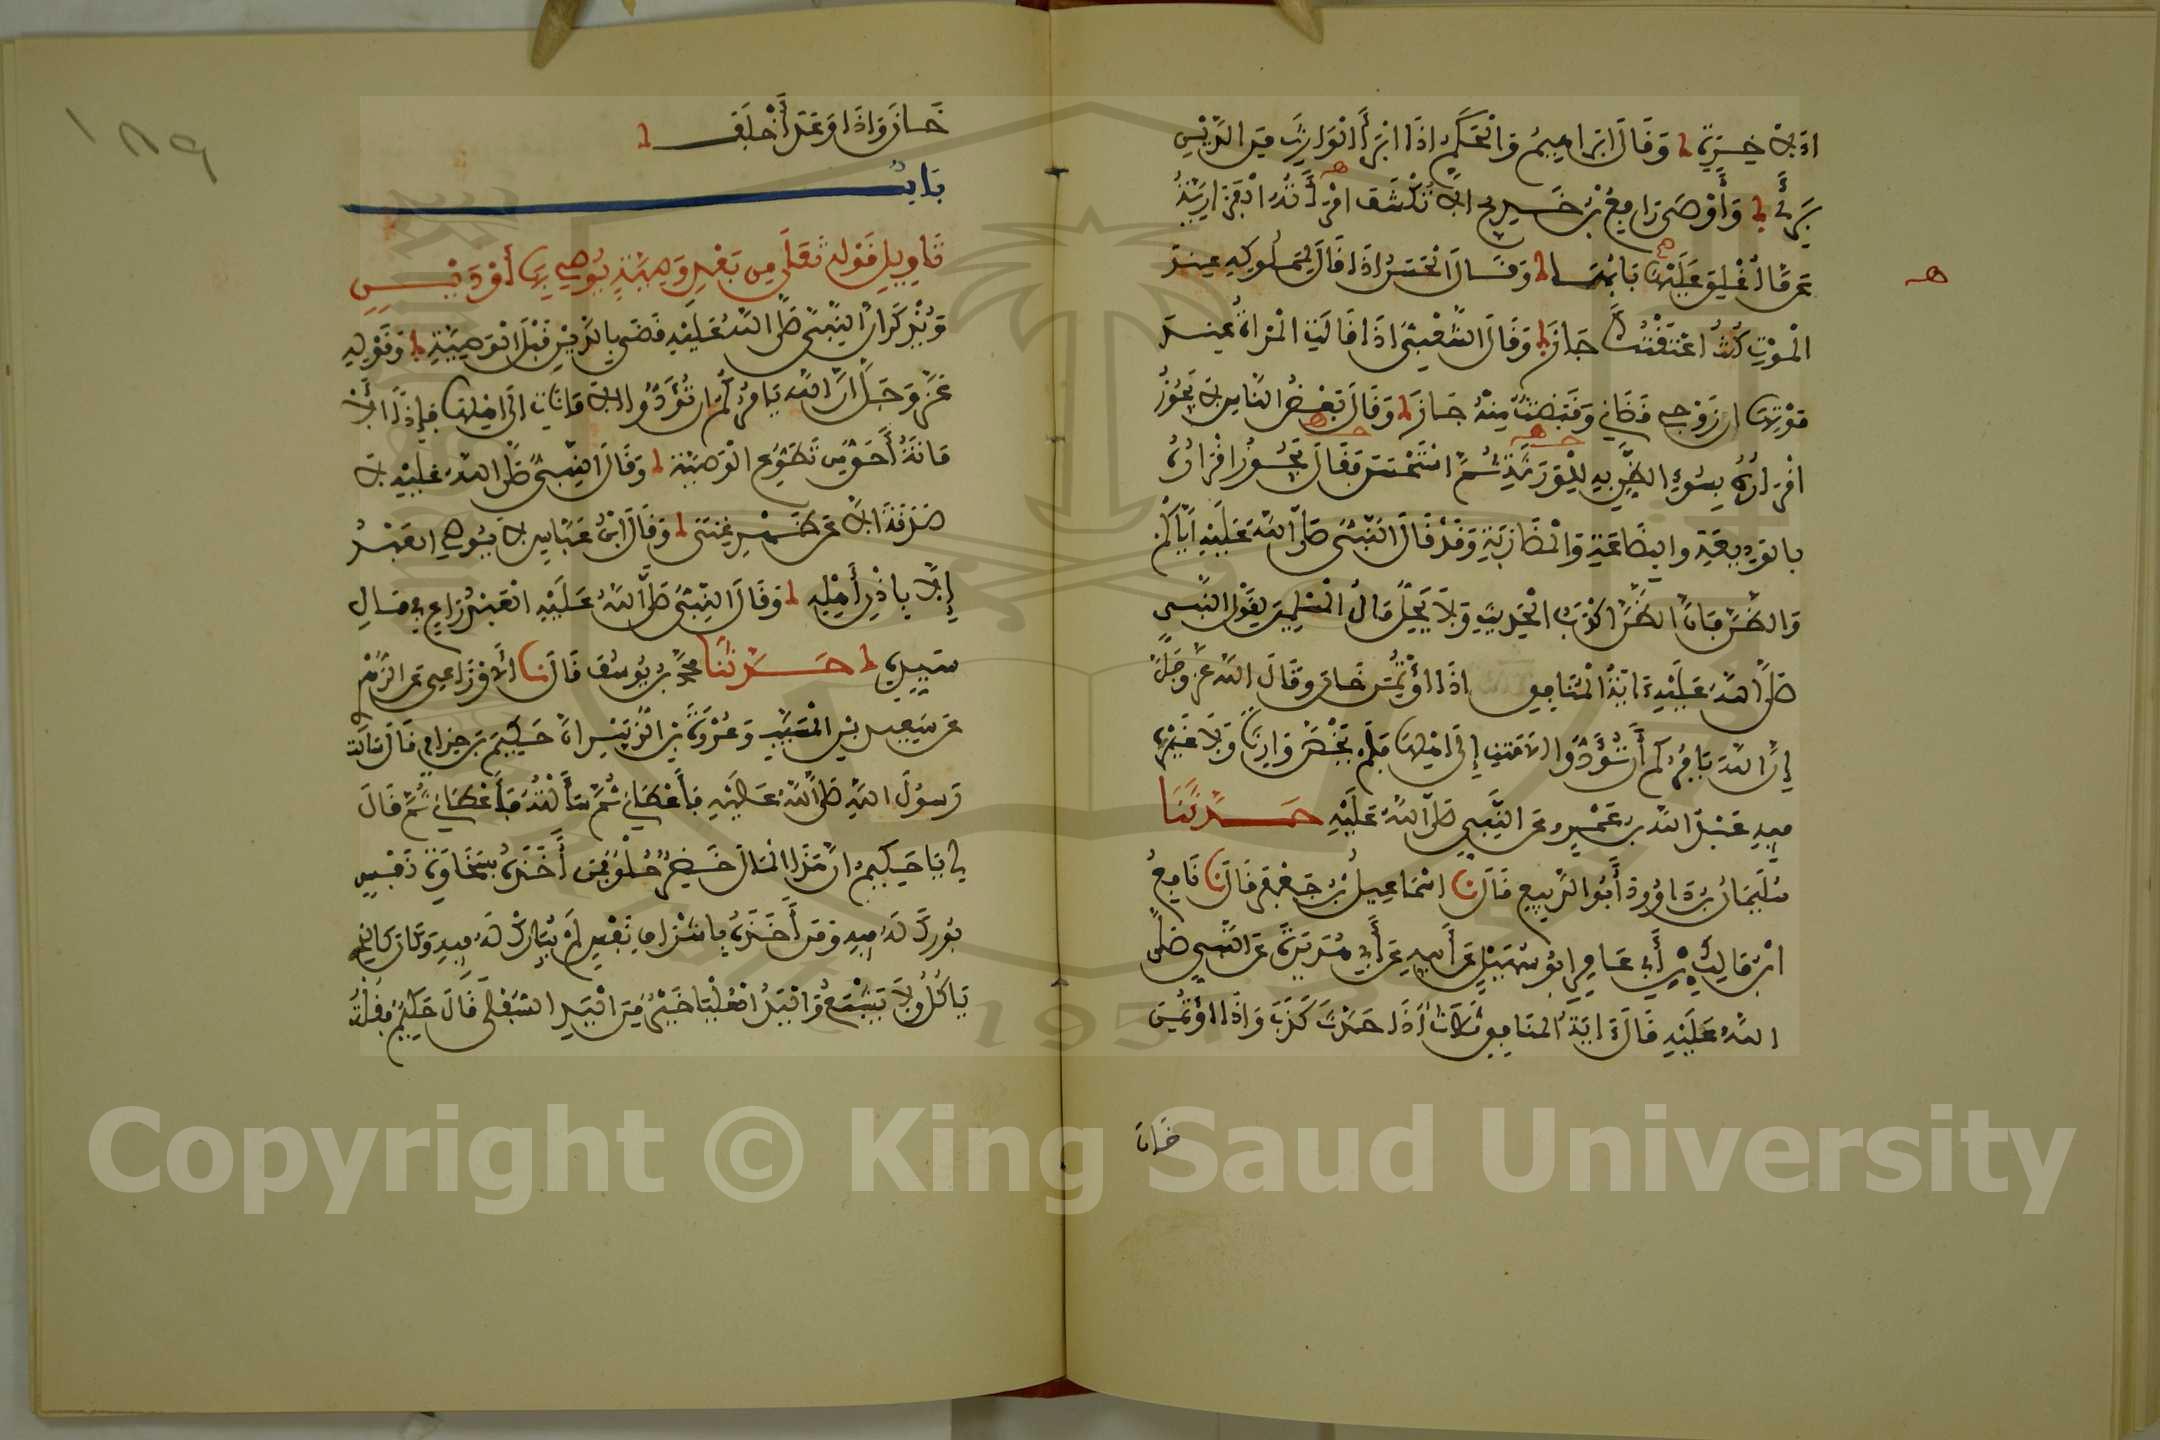 اذينة خيرية وقال ابراهيم والحكم اذا ابرأ الوارث من الدين
برئ وأوصى رافع بن خديج الا تكشف امرأته الفزارية
عن مال أغلق عليها بابها وقال الحسن اذا قال لمملوكه عند
الموت كنت اعتقتك جاز وقال الشعبي اذا قالت المرأة عند
موتها ان زوجي قضاني وقبضت منه جاز وقال بعض الناس لا يجوز
اقراره بسوء الظن به للورثة ثم استحسن فقال يجوز اقراره
بالوديعة والبضاعة والمضاربة وقد قال النبي صلى الله عليه اياكم
والظن فان الظن اكذب الحديث ولا يحل مال المسلمين لقول النبي
صلى الله عليه اية المنافق اذا اؤتمن خان وقال الله عز وجل
إن الله يامركم أن تؤدوا الامنت إلى اهلها فلم يخص وارثا ولا غيره
فيه عبد الله بن عمرو عن النبي صلى الله عليه حدثنا
سليمان بن داوود أبو الربيع قال نا اسماعيل بن جعفر قال نا نافع
ابن مالك بن أبي عامر ابو سهيل عن أبيه عن أبي هريرة عن النبي صلى
الله عليه قال اية المنافق ثلاث اذا حدث كذب واذا اؤتمن
خان
١٨٩
خان واذا وعد أخلف
باب
تاويل قوله تعلى من بعد وصية يوصي بها أو دين
ويذكر ان النبي صلى الله عليه قضى بالدين قبل الوصية وقوله
عز وجل ان الله يامركم ان تؤدوا الامانات الى اهلها فإذا الا
مانة أحق من تطوع الوصية وقال النبي صلى الله عليه لا
صدقة الا عن ظهر غنى وقال ابن عباس لا يوصي العبد
إلا باذن أهله وقال النبي صلى الله عليه العبد راع في مال
سيده حدثنا محمد بن يوسف قال نا الاوزاعي عن الزهر
عن سعيد بن المسيب وعروة بن الزبير ان حكيم بن حزام قال سالت
رسول الله صلى الله عليه فأعطاني ثم سألته فأعطاني ثم قال
لي يا حكيم ان هذا المال خضر حلو فمن أخذه بسخاوة نفس
بورك له فيه ومن أخذه باشراف نفس لم يبارك له فيه وكان كالذي
ياكل ولا يشبع واليد العليا خير من اليد السفلى قال حكيم فقلت